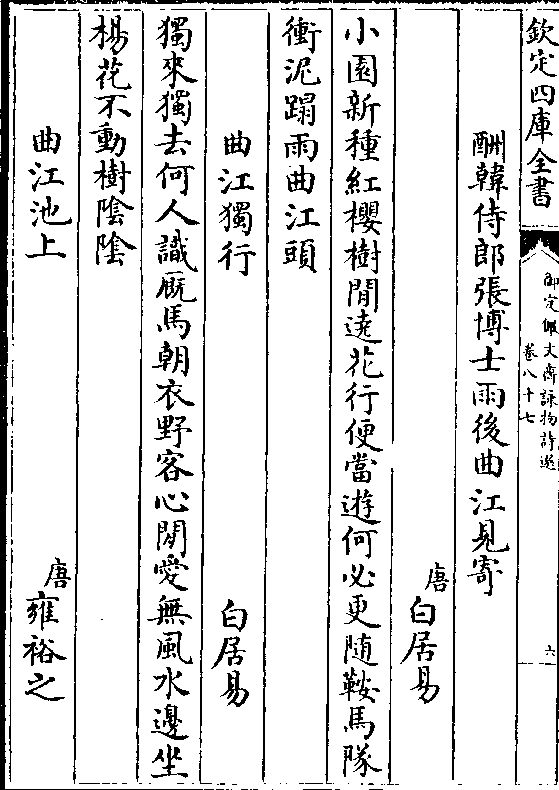 欽定四庫全書
御定佩文齋詠物詩選
卷八十七
六
酬韓侍郎張博士雨後曲江見寄
唐白居易
小園新種紅櫻樹閒遶花行便當遊何必更隨鞍馬隊
衝泥蹋雨曲江頭
曲江獨行
白居易
獨來獨去何人識廐馬朝衣野客心閒愛無風水邊坐
楊花不動樹陰陰
曲江池上
唐雍裕之